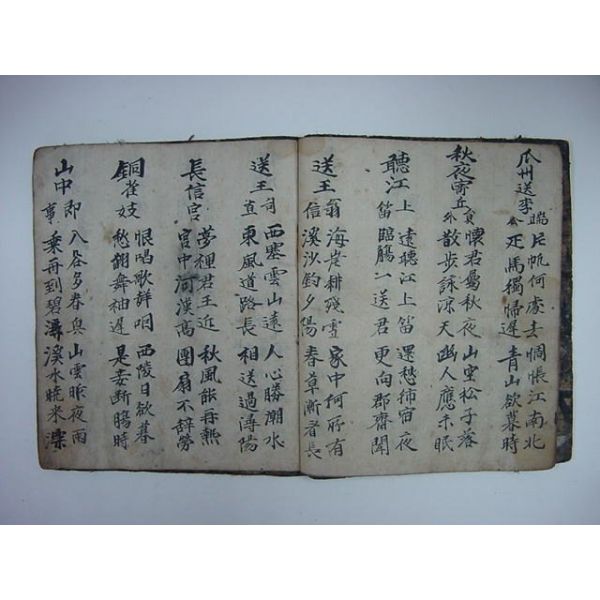 瓜州送李端公
片帆何處去 惆悵江南北
疋馬獨歸遲 青山欲暮時
秋夜寄丘員外
懷君屬秋夜 山空松子落
散步詠涼天 幽人應未眠
聽江上笛
遠聽江上笛 還愁宿夜
臨觴一送君 更向郡齋聞
送王翁信
海崖耕殘雪 家中何所有
溪沙釣夕陽 春草漸看長
送王司直
西塞雲山遠 人心勝潮水
東風道路長 相送過潯陽
長信宮
夢裡君王近 秋風能再熱
宮中河漢高 團扇不辭勞
銅雀妓
恨唱歌聲咽 西陵日欲暮
愁翻舞袖遲 是妾斷腸時
山中即事
入谷多春 山雲昨夜雨
乘再到碧潯 溪水曉來深